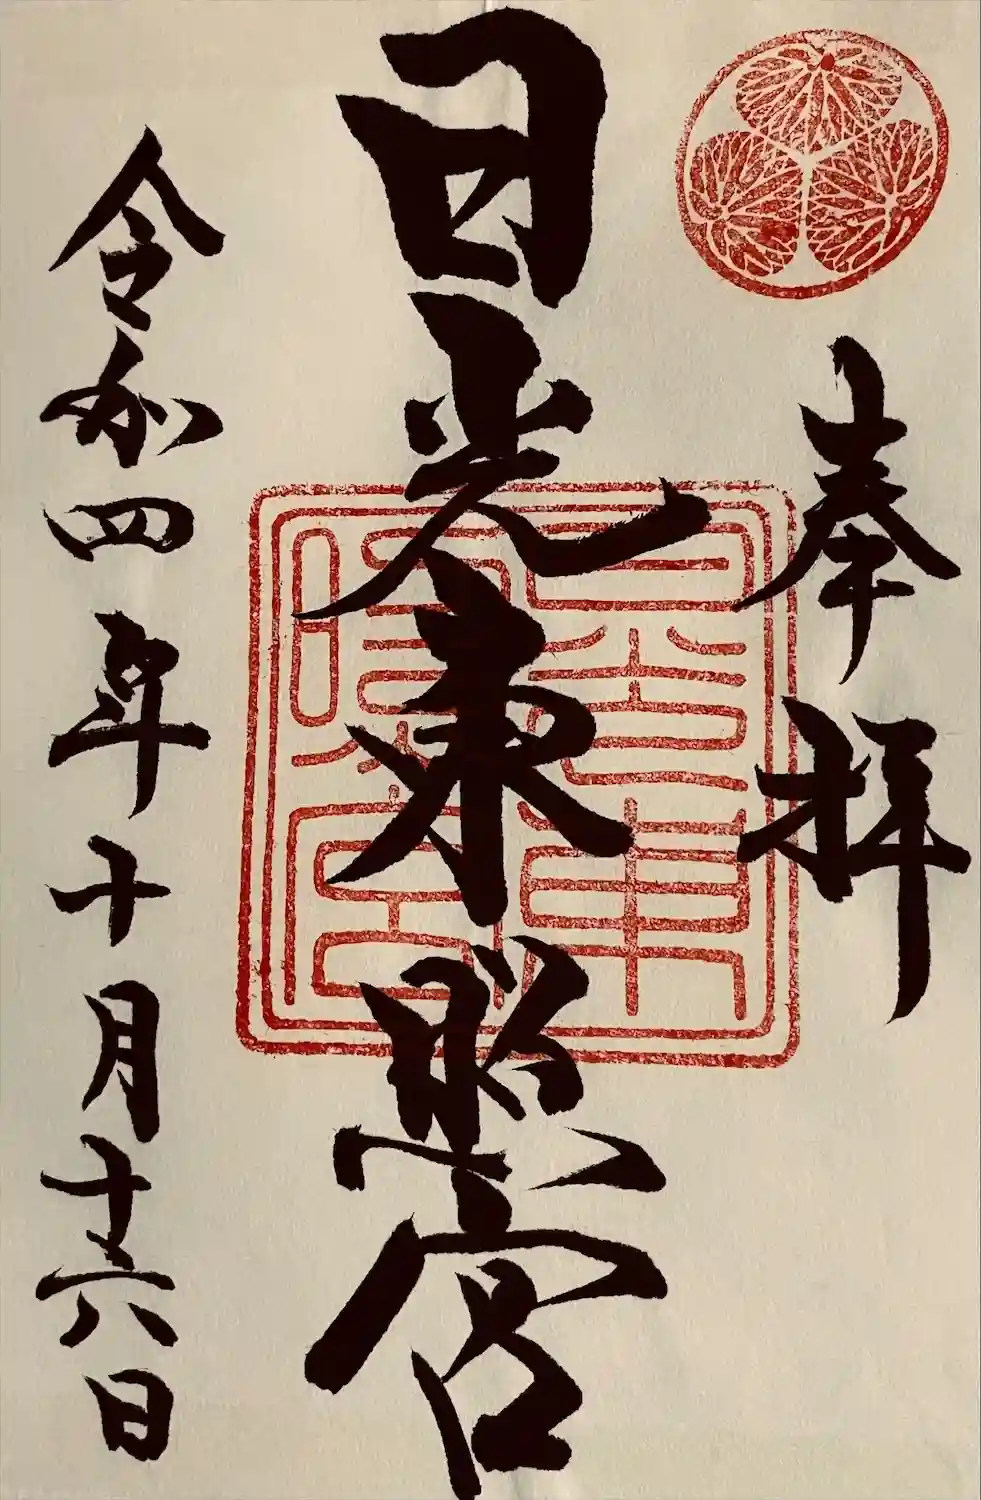 奉拝
日光東照宮
令和四年十月十六日
日光東照宮